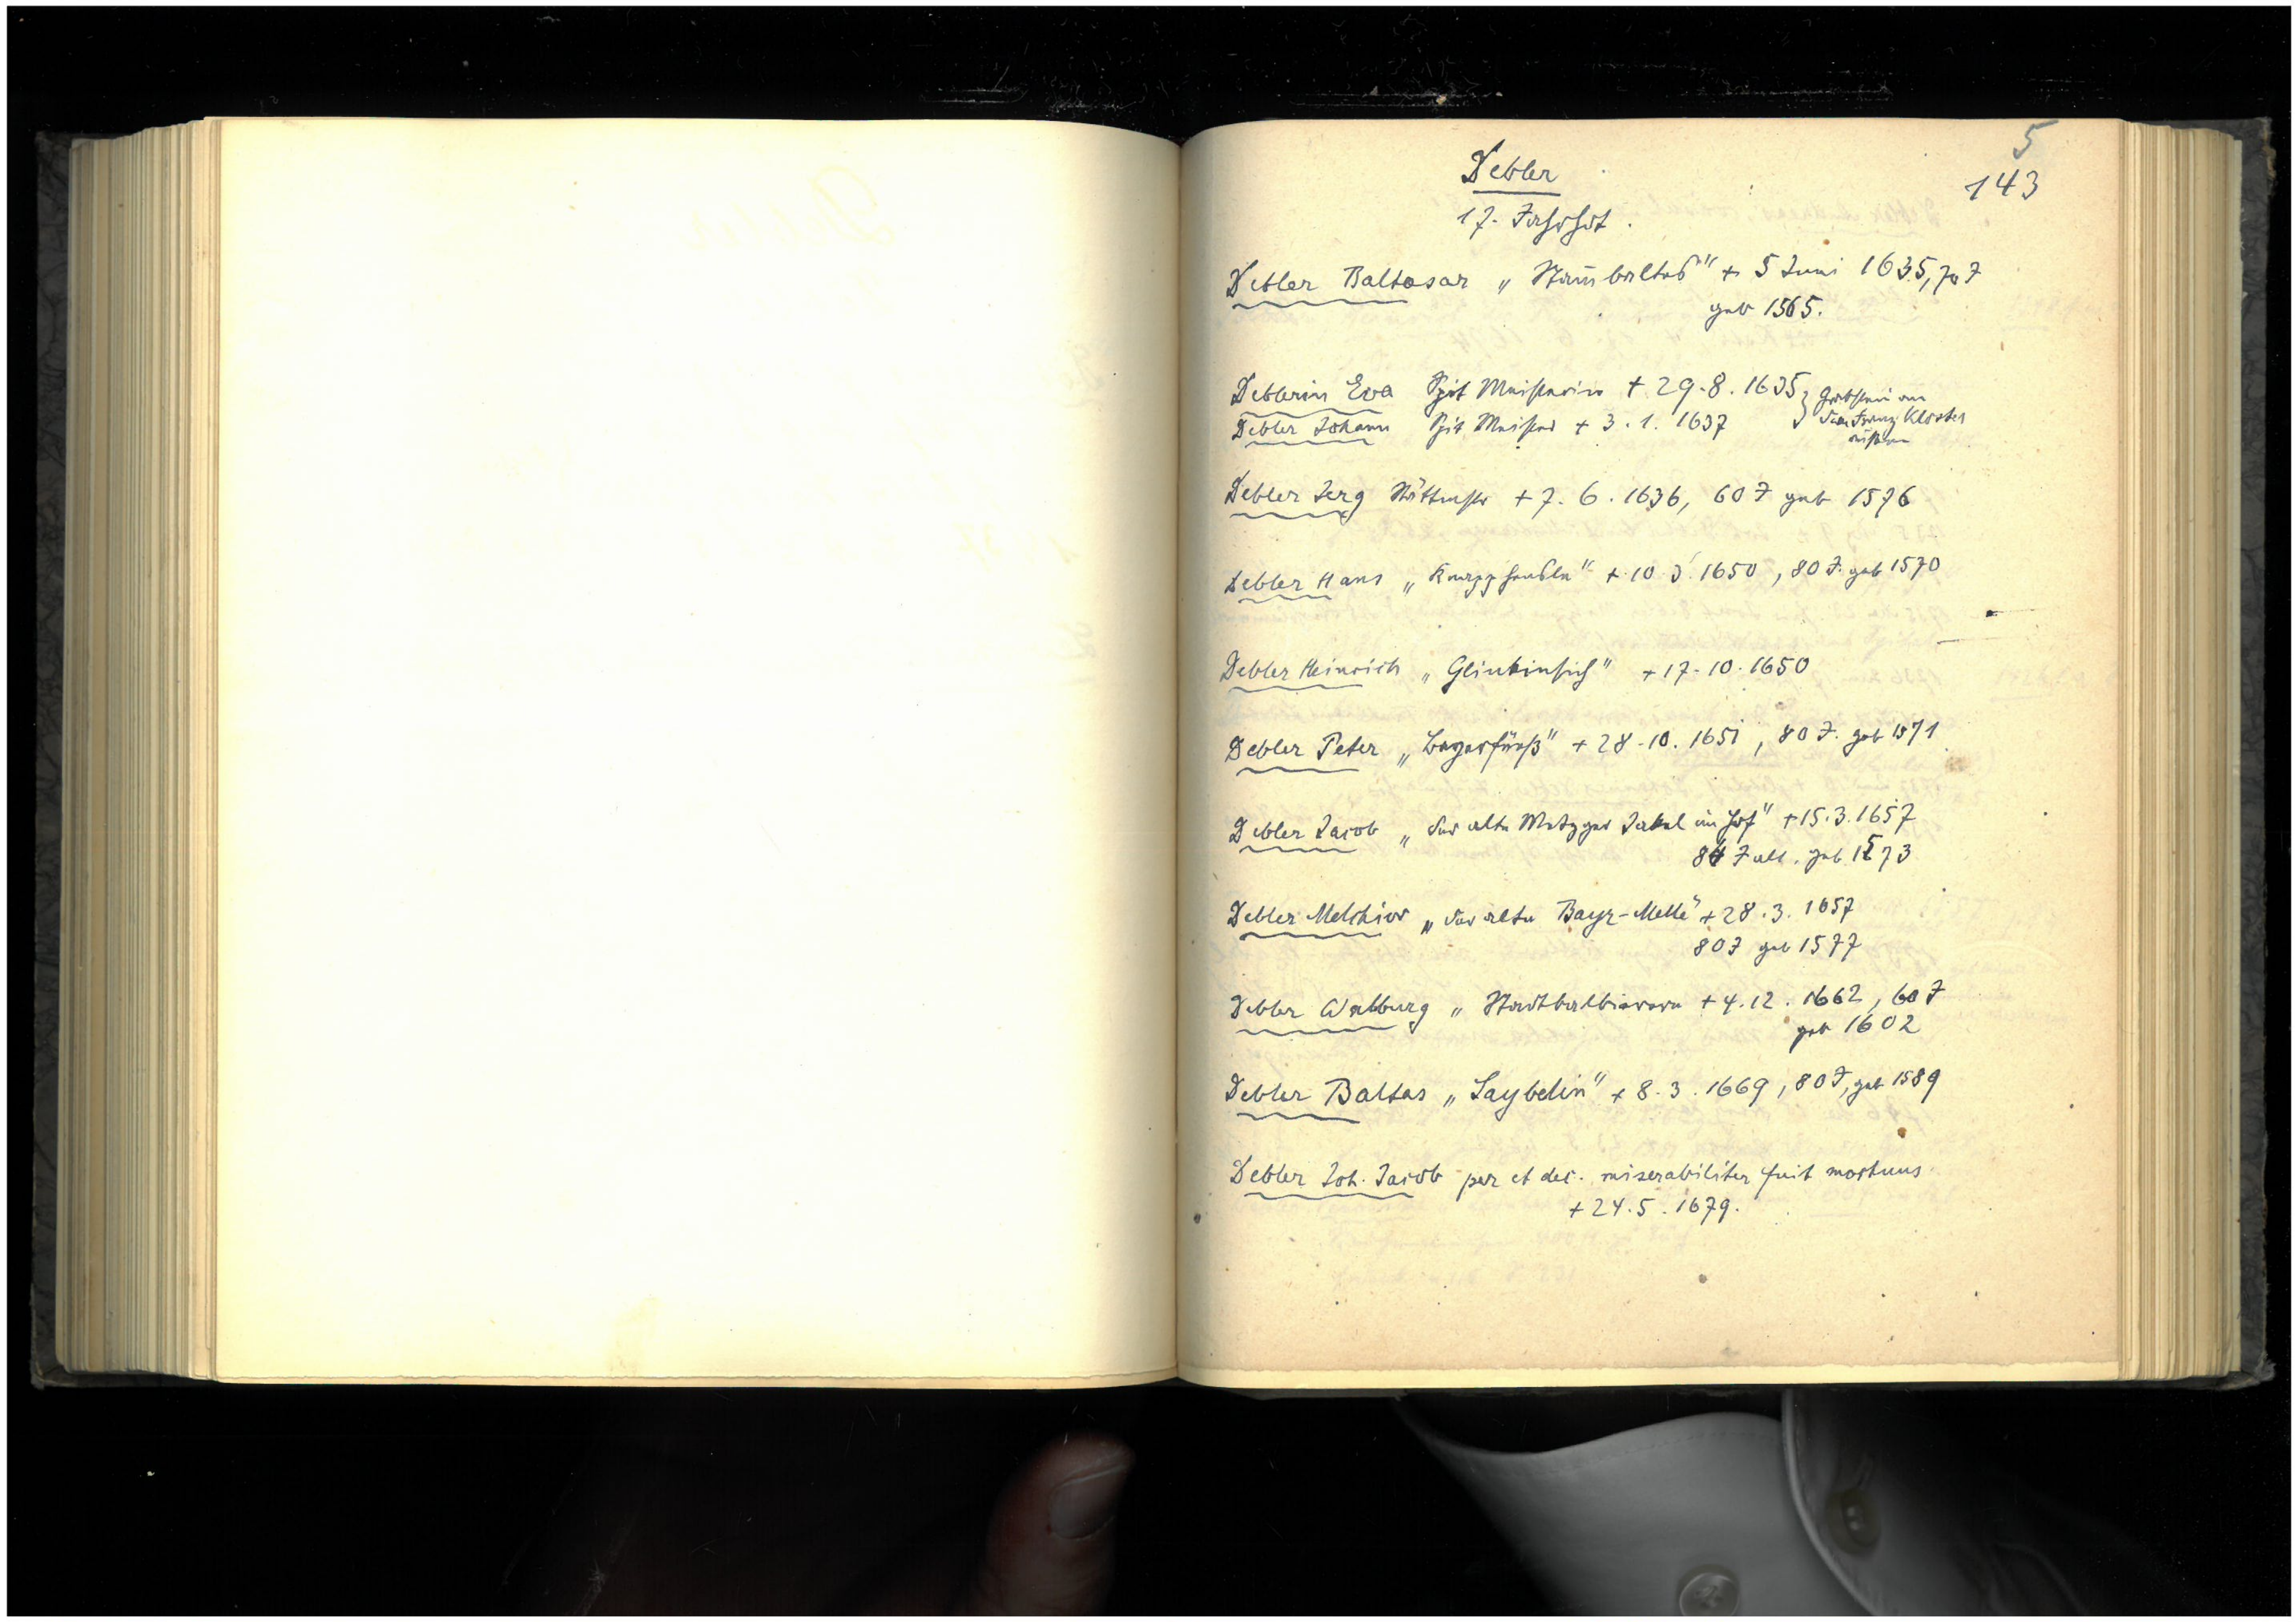 5
143
Debler
17. Jahrhdt.
Debler Baltasar „Staubaltas" + 5 Juni 1635, 70 J
geb 1565.
Deblerin Eva Spit Meisterin + 29.8.1635 } Grabstein am
Debler Johann Spit Meister + 3.1.1637 dem Franz. Kloster
Debler Jerg + 7.6.1636, 60 J geb 1576
Debler Hans „Knapphensle" + 10.3.1650, 80 J. geb 1570
Debler Heinrich + 17.10.1650
Debler Peter + 28.10.1651, 80 J. geb 1571
Debler Jacob „der alte Metzger Jakel im Hof" + 15.3.1657
84 J alt. geb 1573
Debler Melchior „der alte Bayr-Melle" + 28.3.1657
80 J geb 1577
Debler Walburg „Stadtbalbiererin + 4.12.1662, 60 J
geb 1602
Debler Baltas „Saybelin" + 8.3.1669, 80 J, geb 1589
Debler Joh. Jacob per et dec. miserabiliter fuit mortuus
+ 24.5.1679.